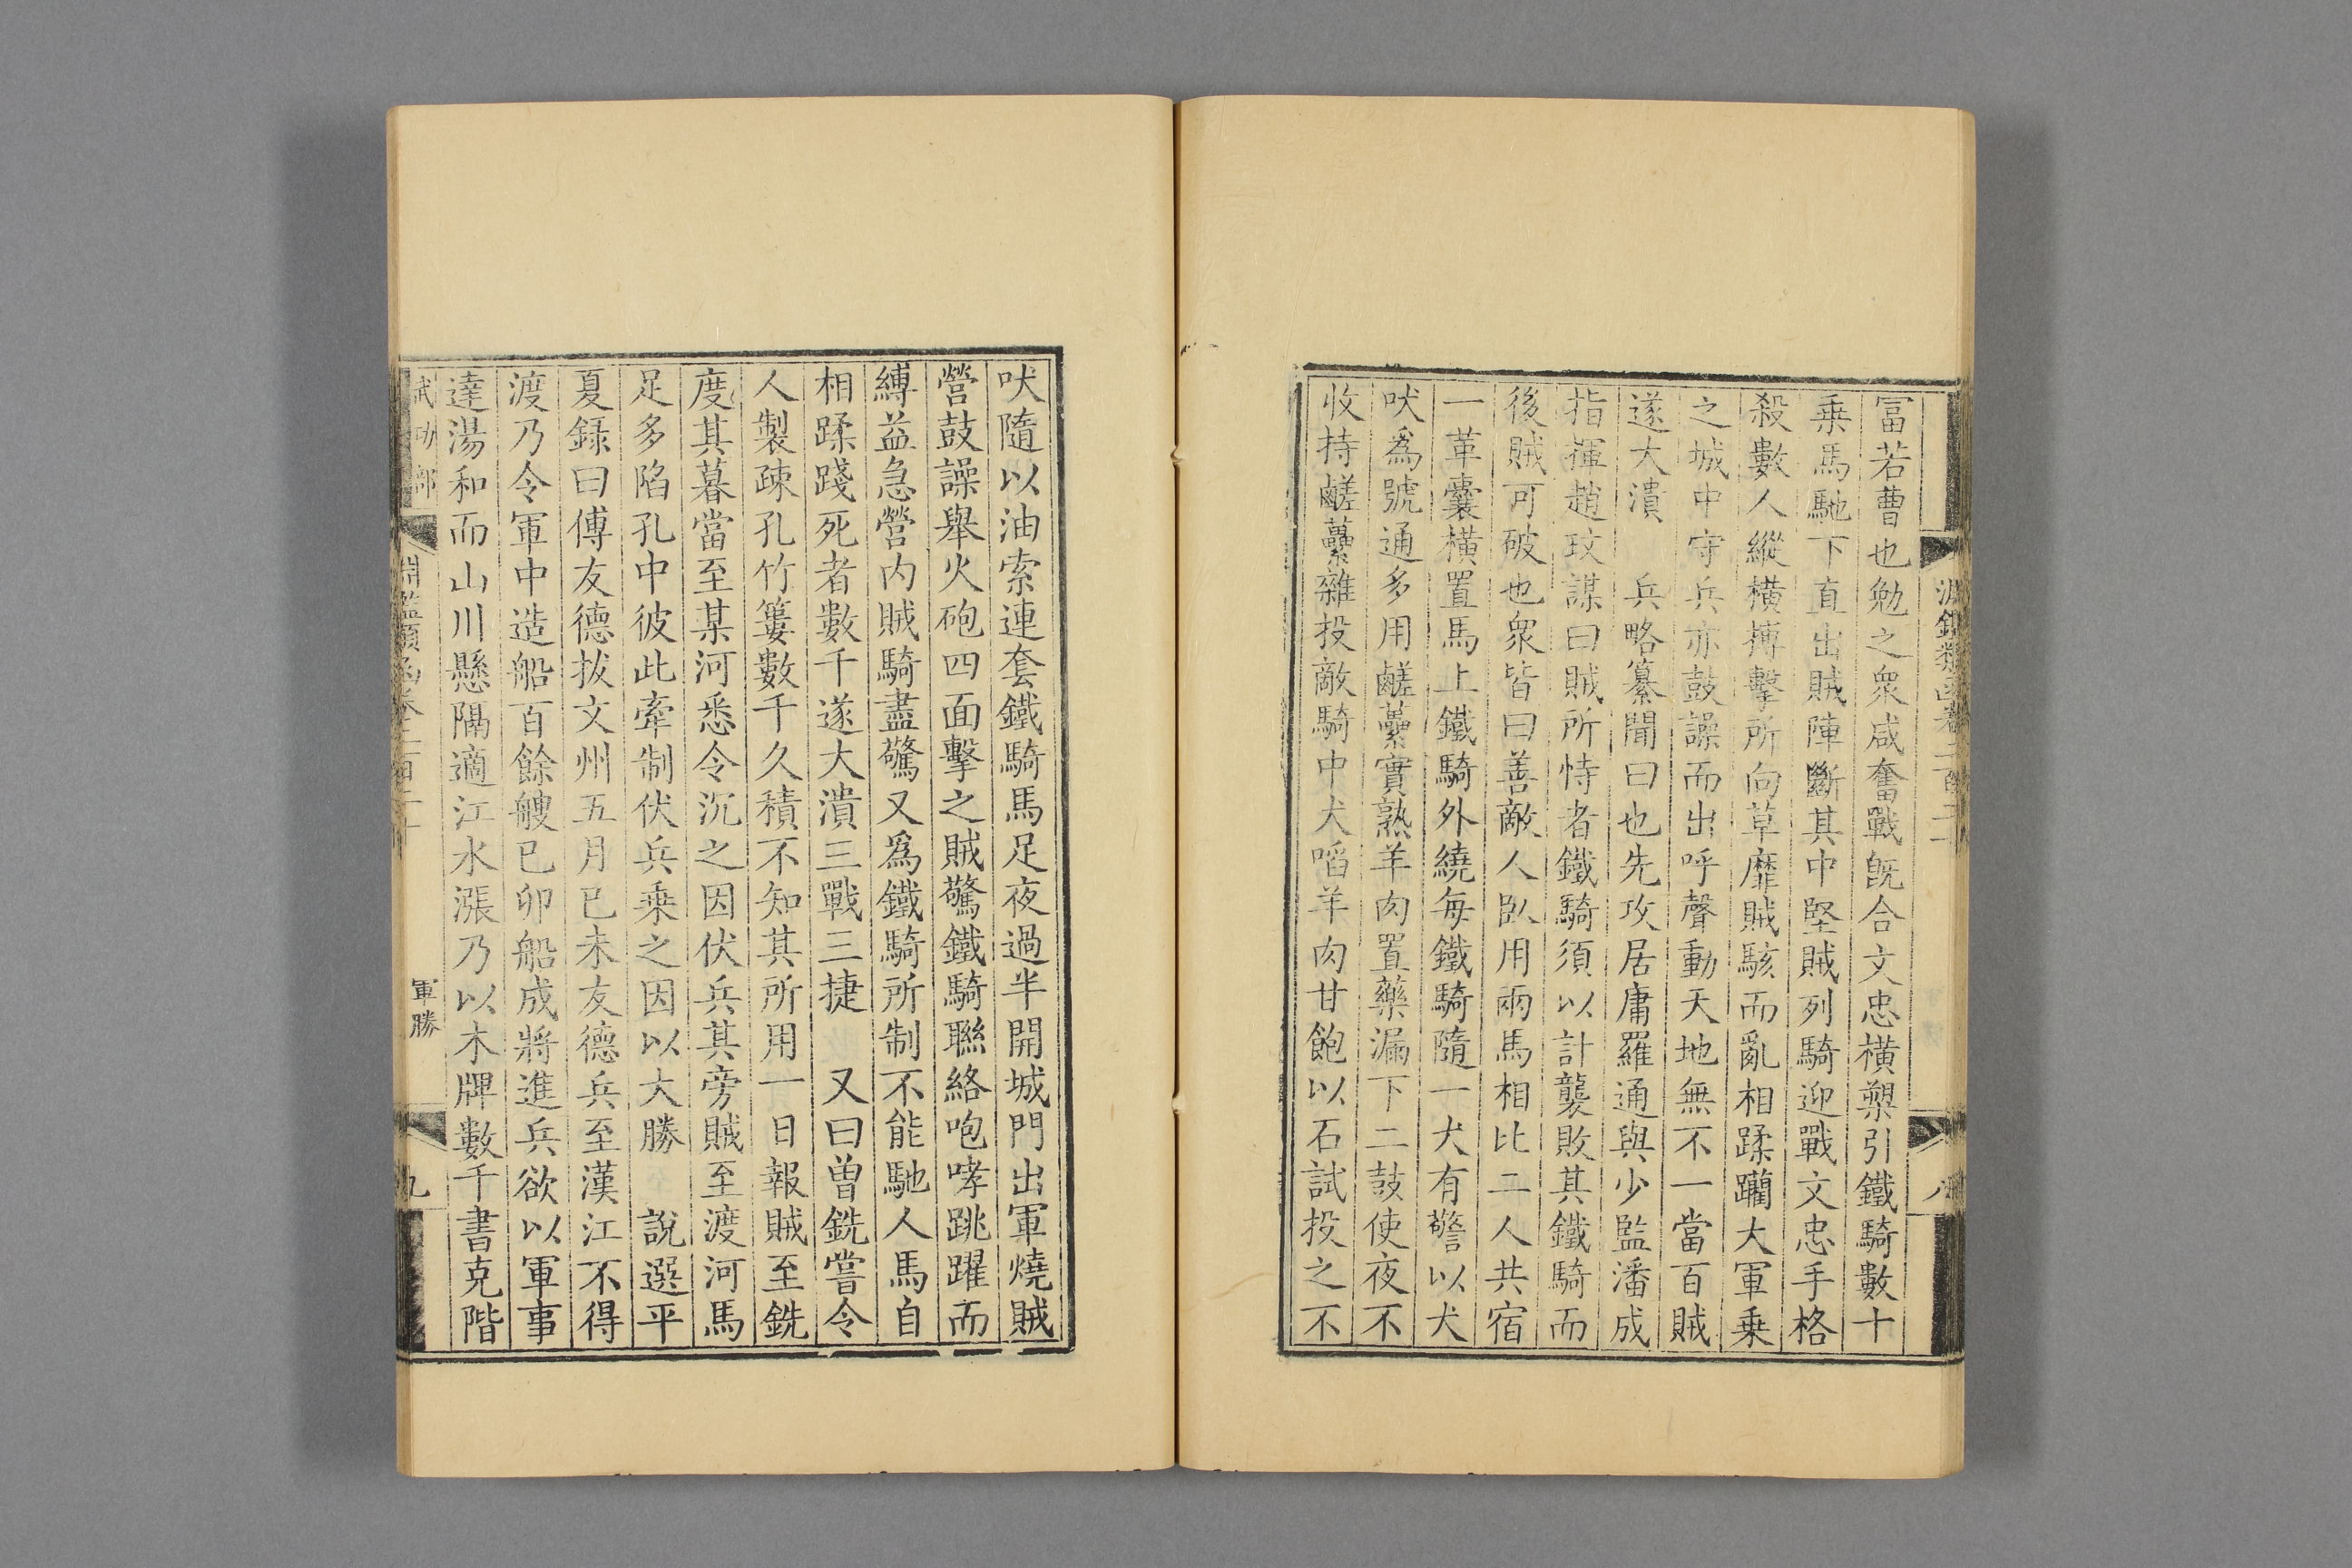 富若曹也勉之衆咸奮戰旣合文忠橫槊引鐵騎數十
乗馬馳下直出賊陣斷其中堅賊列騎迎戰文忠手格
殺數人縱橫搏擊所向草靡賊駭而亂相蹂躪大軍乗
之城中守兵亦鼓譟而出呼聲動天地無不一當百賊
遂大潰　兵略纂聞曰也先攻居庸羅通與少監潘成
指揮趙玟謀曰賊所恃者鐵騎須以計襲敗其鐵騎而
後賊可破也衆皆曰善敵人臥用兩馬相比二人共宿
一革囊橫置馬上鐵騎外繞每鐵騎隨一犬有警以犬
吠爲號通多用鹺虆實熟羊肉置藥漏下二鼓使夜不
收持鹺虆雜投敵騎中犬啗羊肉甘飽以石試投之不
吠隨以油索連套鐵騎馬足夜過半開城門出軍燒賊
營鼓譟舉火砲四面擊之賊驚鐵騎聯絡咆哮跳躍而
縛益急營内賊騎盡驚又爲鐵騎所制不能馳人馬自
相蹂踐死者數千遂大潰三戰三捷　又曰曾銑嘗令
人製疎孔竹簍數千久積不知其所用一日報賊至銑
度其暮當至某河悉令沉之因伏兵其旁賊至渡河馬
足多陷孔中彼此牽制伏兵乗之因以大勝　說選平
夏録曰傅友德拔文州五月已未友德兵至漢江不得
渡乃令軍中造船百餘艘已卯船成將進兵欲以軍事
達湯和而山川懸隔適江水漲乃以木牌數千書克階
武功部
淵鑑類函卷二百二十
軍勝
九